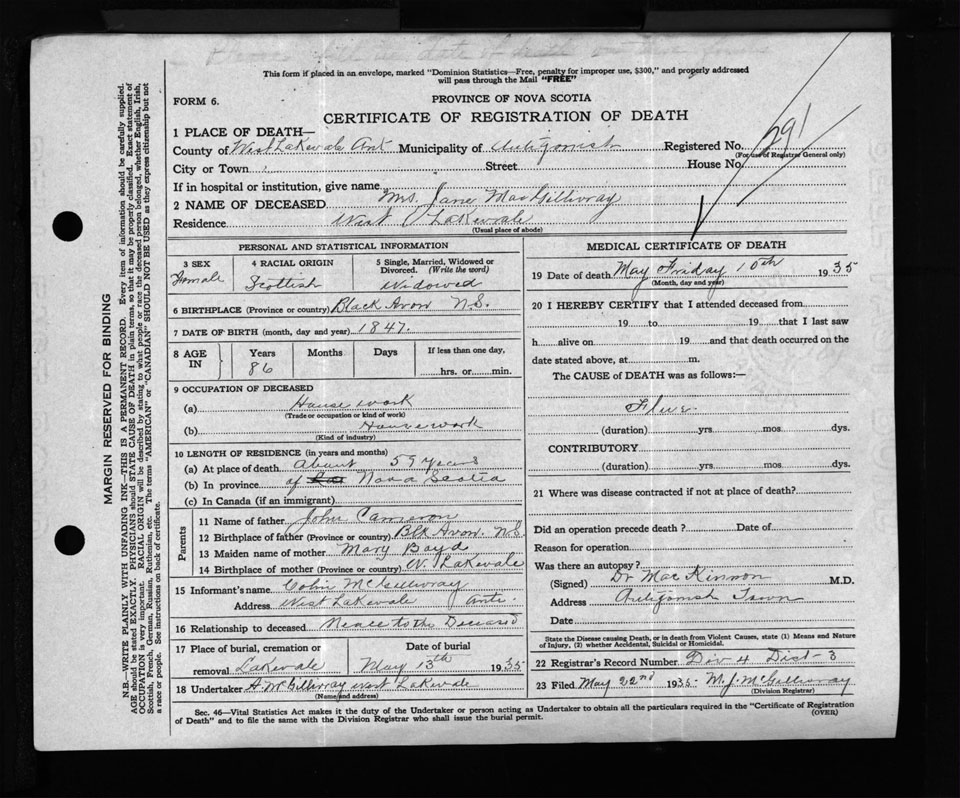 This form if placed in an envelope, marked "Dominion Statistics—Free, penalty for improper use, $300," and properly addressed
will pass through the Mail "FREE"
FORM 6.
PROVINCE OF NOVA SCOTIA
CERTIFICATE OF REGISTRATION OF DEATH
291
1 PLACE OF DEATH—
County of West Lakevale Ant Municipality of Antigonish Registered No.
(For use of Registrar General only)
City or Town Street House No.
If in hospital or institution, give name
2 NAME OF DECEASED Mrs. Jane MacGillivray
Residence West Lakevale
(Usual place of abode)
PERSONAL AND STATISTICAL INFORMATION
3 SEX
Female
4 RACIAL ORIGIN
Scottish
5 Single, Married, Widowed or
Divorced. (Write the word)
Widowed
6 BIRTHPLACE (Province or country) Black Avon N.S.
7 DATE OF BIRTH (month, day and year) 1847.
8 AGE
IN
Years
86
Months
Days
If less than one day,
hrs. or min.
9 OCCUPATION OF DECEASED
(a) House work
(Trade or occupation or kind of work)
(b) House work
(Kind of industry)
10 LENGTH OF RESIDENCE (in years and months)
(a) At place of death About 59 years
(b) In province of Nova Scotia
(c) In Canada (if an immigrant)
Parents
11 Name of father John Cameron
12 Birthplace of father (Province or country) Blk Avon. N.S
13 Maiden name of mother Mary Boyd
14 Birthplace of mother (Province or country) W. Lakevale
15 Informant's name Colin McGillivray
Address West Lakevale Anti.
16 Relationship to deceased Neace to the Deceased
17 Place of burial, cremation or
removal Lakevale
Date of burial
May 13th 1935
18 Undertaker A. McGillivray west Lakevale
(Name and address)
MEDICAL CERTIFICATE OF DEATH
19 Date of death May Friday 10th 1935
(Month, day and year)
20 I HEREBY CERTIFY that I attended deceased from
19 to 19 that I last saw
h alive on 19 and that death occurred on the
date stated above, at m.
The CAUSE of DEATH was as follows:—
Flue
(duration) yrs. mos. dys.
CONTRIBUTORY
(duration) yrs. mos. dys.
21 Where was disease contracted if not at place of death?
Did an operation precede death? Date of
Reason for operation
Was there an autopsy?
(Signed) Dr MacKinnon M.D.
Address Antigonish Town
Date
State the Disease causing Death, or in death from Violent Causes, state (1) Means and Nature
of Injury, (2) whether Accidental, Suicidal or Homicidal.
22 Registrar's Record Number Div 4 Dist-3
23 Filed May 22nd 1935 M. J. McGillivray
(Division Registrar)
Sec. 46—Vital Statistics Act makes it the duty of the Undertaker or person acting as Undertaker to obtain all the particulars required in the "Certificate of Registration
of Death" and to file the same with the Division Registrar who shall issue the burial permit.
(OVER)
MARGIN RESERVED FOR BINDING
N.B.—WRITE PLAINLY WITH UNFADING INK—THIS IS A PERMANENT RECORD. Every item of information should be carefully supplied.
AGE should be stated EXACTLY. PHYSICIANS should STATE CAUSE OF DEATH in plain terms, so that it may be properly classified. Exact statement of
OCCUPATION is very important. RACIAL ORIGIN will be described by stating to what people or race the deceased person belonged, whether English, Irish,
Scottish, French, German, Russian, Ruthenian, etc. The terms "AMERICAN" or "CANADIAN" SHOULD NOT BE USED as they express citizenship but not
a race or people. See instructions on back of certificate.